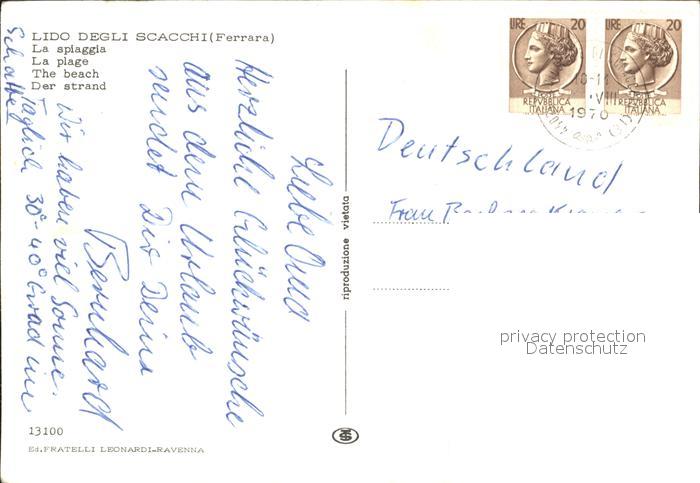 LIDO DEGLI SCACCHI (Ferrara)
La spiaggia
La plage
The beach
Der strand
LIRE 20
LIRE 20
REPVBBLICA
ITALIANA
REPVBBLICA
ITALIANA
10-11
VIII
1970
Liebe Oma
Herzliche Glückwünsche
aus dem Urlaub
sendet Dir Dein
Bernhard
Wir haben viel Sonne.
Täglich 30°-40° Grad im
Schatten
Deutschland
Frau Barbara
riproduzione vietata
privacy protection
Datenschutz
13100
Ed. FRATELLI LEONARDI-RAVENNA